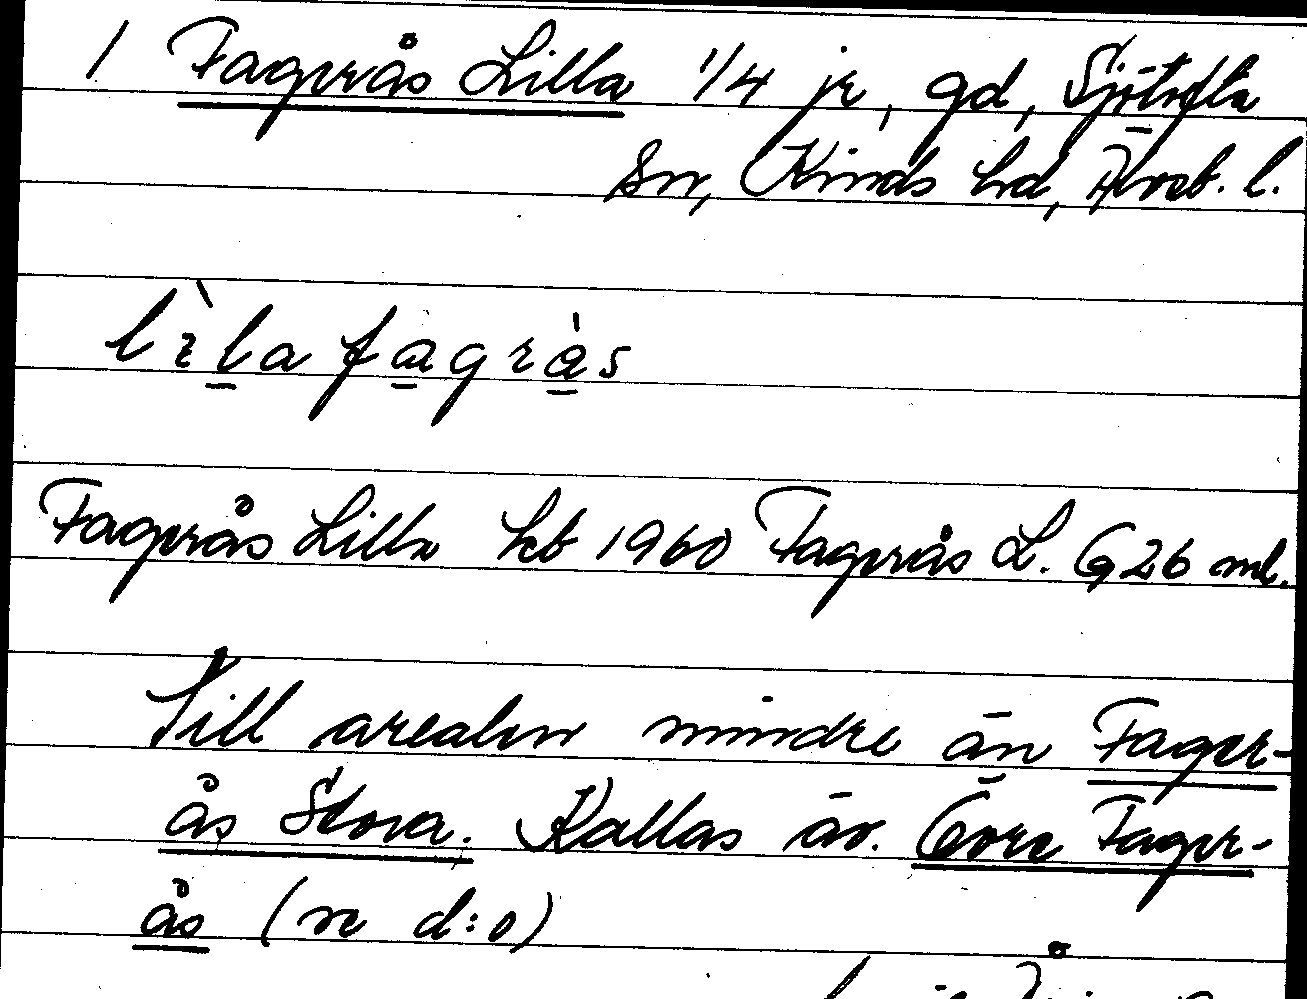 1 Fagerås Lilla 1/4 je, gd, Sjötofta
sn, Kinds hd, Älvsb. l.
lìla fagràs
Fagerås Lilla Jeb 1960 Fagerås L. G26 ml.
Till arealen mindre än Fager-
ås Stora. Kallas äv. Övre Fager-
ås (se d:o)